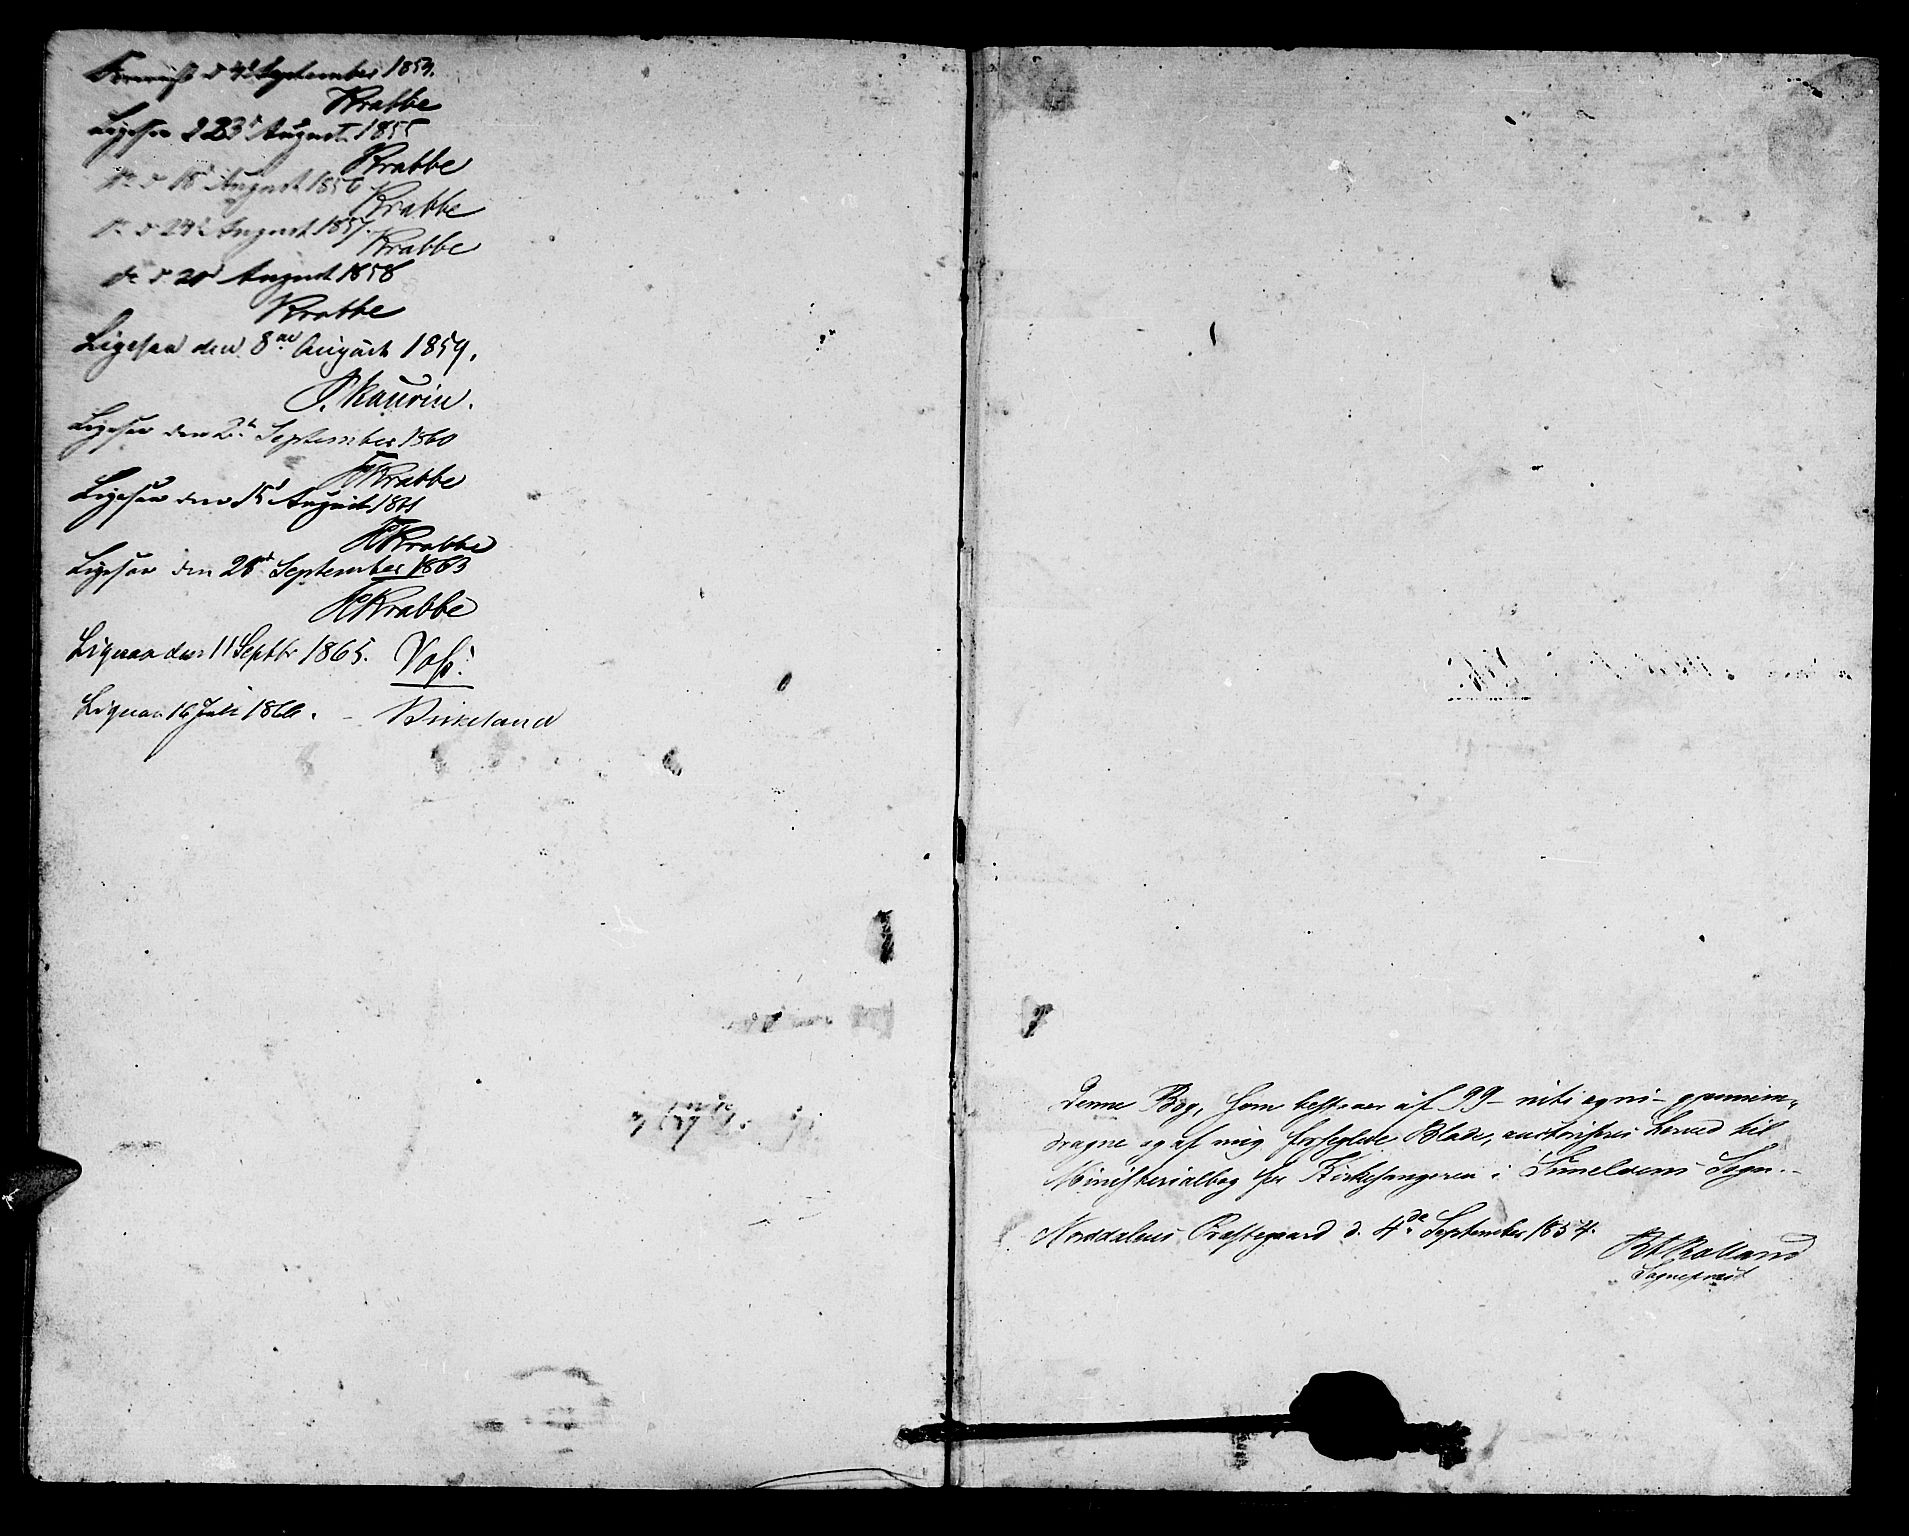 Fremvist d 4d September 1854.
Krabbe
Ligesaa d 23d August 1855
Krabbe
do d 18d August 1856
Krabbe
do d 24d August 1857.
Krabbe
do d 20d August 1858
Krabbe
Ligesaa den 8de August 1859.
P. Kaurin.
Ligesaa den 2den September 1860
HKrabbe
Ligesaa den 15d August 1861
HKrabbe
Ligesaa den 28d September 1863
HKrabbe
Ligesaa den 11 Septbr 1865. Voss.
Ligesaa 16 Juli 1866. - Birkeland
Denne Bog, som bestaaer af 99 - niti og ni - gjennem-
dragne og af mig forseglede Blade, auctoriseres herved til
Ministerialbog for Kirkesangeren i Sunelvens Sogn. -
Norddalens Præstegaard d. 4de September 1854.
Balland
Sognepræst